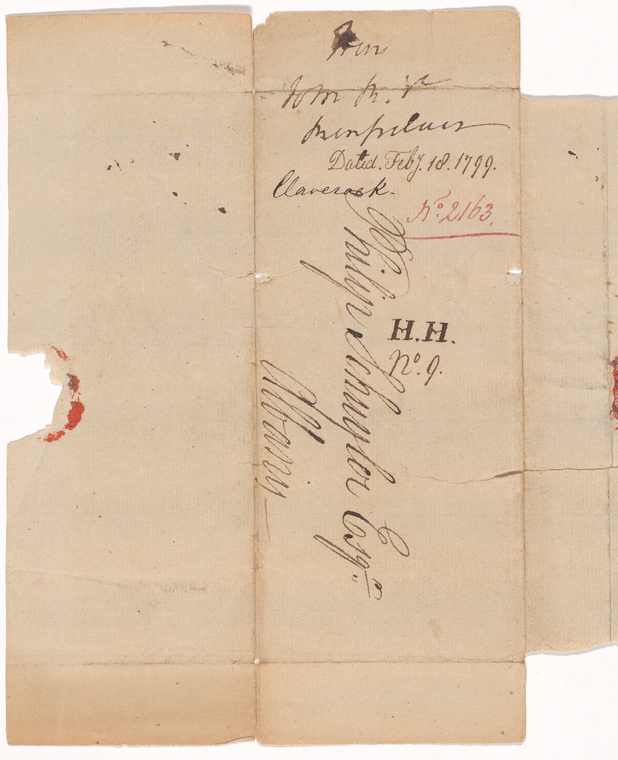 from
John R. V
Renselaer
Dated. Feby. 18. 1799.
Claverack.
No. 2163.
H. H.
No. 9.
Philip Schuyler Esqr.
Albany